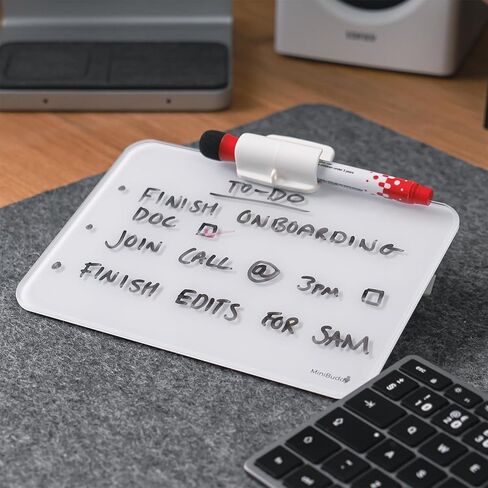 TO-DO
• FINISH ONBOARDING
DOC ☑
• JOIN CALL @ 3PM ☐
• FINISH EDITS FOR SAM
MiniBuddy
esc